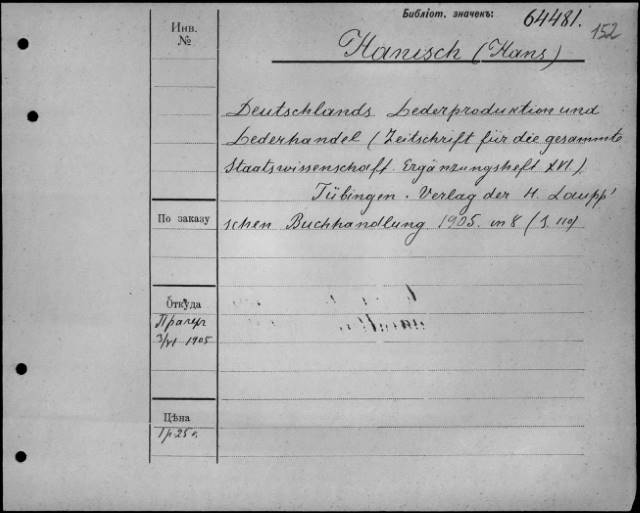 Библіот. значекъ: 64481. 152
Инв. №
Hanisch (Hans)
Deutschlands Lederproduktion und
Lederhandel (Zeitschrift für die gesammte
Staatswissenschaft. Ergänzungsheft XVI).
Tübingen. Verlag der H. Laupp'
schen Buchhandlung 1905. in 8 (S. 110)
По заказу
Откуда
Прагеръ
3/VI 1905
Цѣна
1 р 25 к.